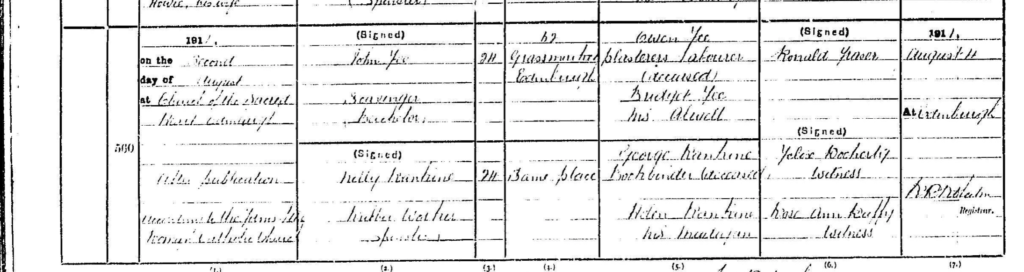 (Spinster)
1911.
on the Second
day of August
at Church of the Sacred
Heart Edinburgh
After publication
according to the forms of the
Roman Catholic Church
560
(Signed)
John Fee
Scavenger
Bachelor
(Signed)
Nelly Rankine
Rubber Worker
Spinster
24
24
52
Grassmarket
Edinburgh
Same place
Owen Fee
Plasterers Labourer
(deceased)
Bridget Fee
M.S.
George Rankine
Bookbinder (deceased)
Helen Rankine
M.S.
(Signed)
Ronald Fraser
(Signed)
Felix Docherty
Witness
Rose Ann Duffy
Witness
1911,
August 4
At Edinburgh
Registrar.
(1.)
(2.)
(3.)
(4.)
(5.)
(6.)
(7.)